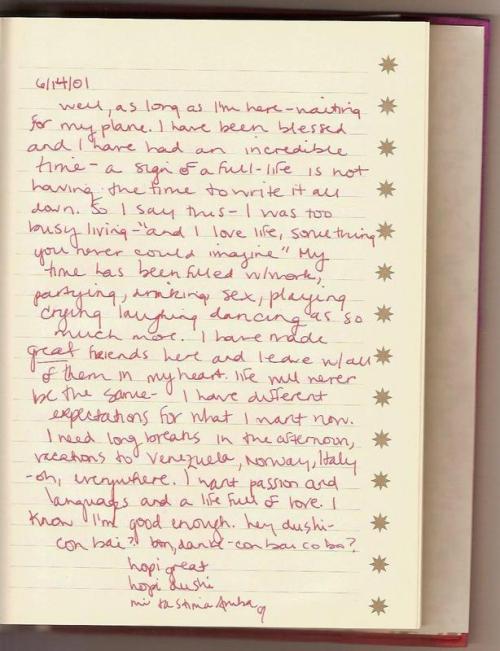 6/14/01
well, as long as I'm here - waiting
for my plane. I have been blessed
and I have had an incredible
time - a sign of a full-life is not
having the time to write it all
down. So I say this - I was too
busy living - "and I love life, something
you never could imagine" My
time has been filled w/work,
partying, drinking, sex, playing
crying laughing dancing as so
much more. I have made
great friends here and leave w/all
of them in my heart. life will never
be the same - I have different
expectations for what I want now.
I need long breaks in the afternoon,
vacations to Venezuela, Norway, Italy
- oh, everywhere. I want passion and
languages and a life full of love. I
know I'm good enough. hey dushi -
con bai? bon, danki - con bai co ba?
hopi great
hopi dushi
mi ta stima Aruba